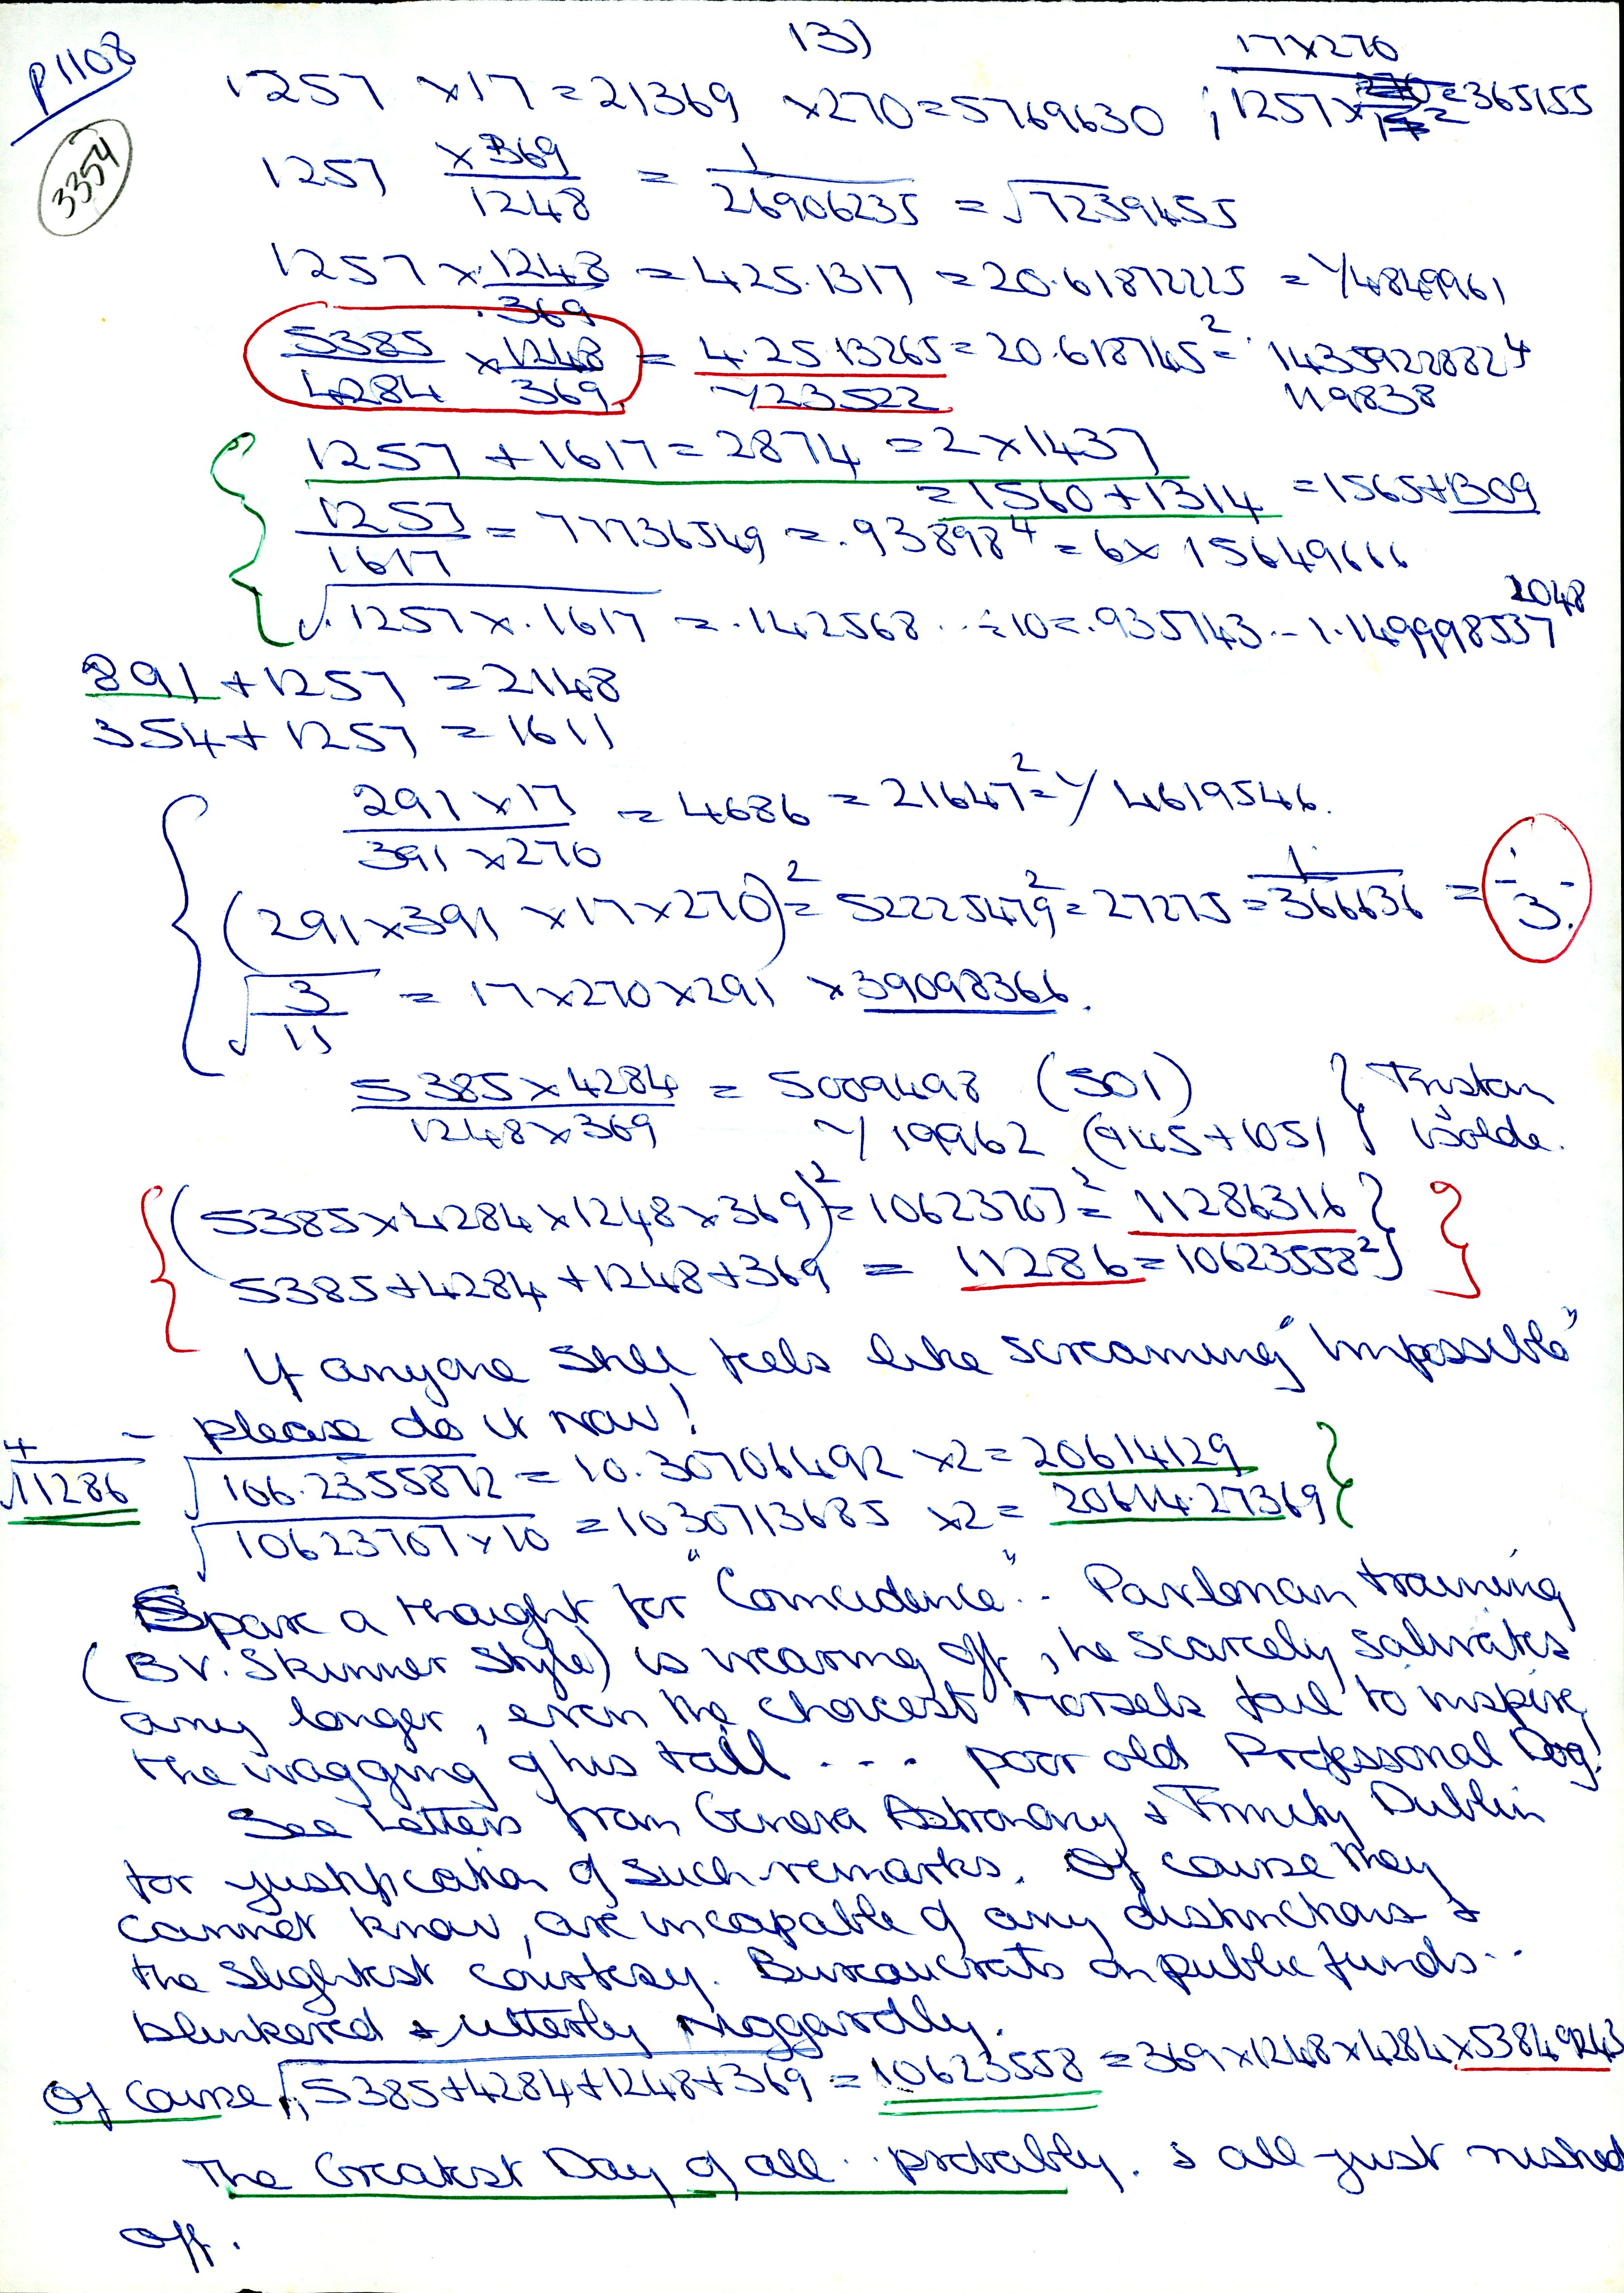 13)
P1108
3354
17x270
1257 x17 = 21369 x270 = 5769630 ; 1257 x = 365155
1257 x369/1248 = 1/26906235 = √7239455
1257 x 1248/.369 = 425.1317 = 20.61872225² = Y4849961
5385/4284 x 1248/369 = 4.25.13265 = 20.618745² = 14359228824
Y23522 119838
1257 + 1617 = 2874 = 2 x 1437
= 1560 + 1314 = 1565+1309
1257/1617 = 77736549 = .93898⁴ = 6 x 15649666
√.1257 x .1617 = .142568 .. ÷10 = .935743 .- 1.149998537 2048
891 + 1257 = 2148
354 + 1257 = 1611
291 x 17/391 x 270 = 4686 = 21647² = Y 4619546.
(291 x 391 x 17 x 270)² = 52225479² = 27275 = 1/366636 = 1/3.
√3/11 = 17 x 270 x 291 x 39098366.
5385 x 4284/1248 x 369 = 5009498 (501) } Tristan
Y 19962 (945 + 1051 } Isolde.
(5385 x 4284 x 1248 x 369)² = 10623707² = 11286316 }
5385 + 4284 + 1248 + 369 = 11286 = 10623558² }
If anyone still feels like screaming "Impossible"
- please do it now!
⁴√11286 √106.2355872 = 10.30706492 x2 = 20614129
√10623707 x 10 = 1030713685 x2 = 20614.27369
Spare a thought for "Coincidence".. Pavlovian training
(B V. Skinner Style) is wearing off, he scarcely salivates
any longer, even the choicest morsels fail to inspire
the wagging of his tail . . . poor old Professional Dog!
See Letters from Geneva Astronomy & Trinity Dublin
for justification of such remarks. Of course they
cannot know, are incapable of any distinctions &
the slightest courtesy. Bureaucrats on public funds..
blinkered & utterly niggardly.
Of course,, √5385+4284+1248+369 = 10623558 = 369 x 1248 x 4284 x 53849243
The Greatest Day of all .. probably. & all just rushed
off.